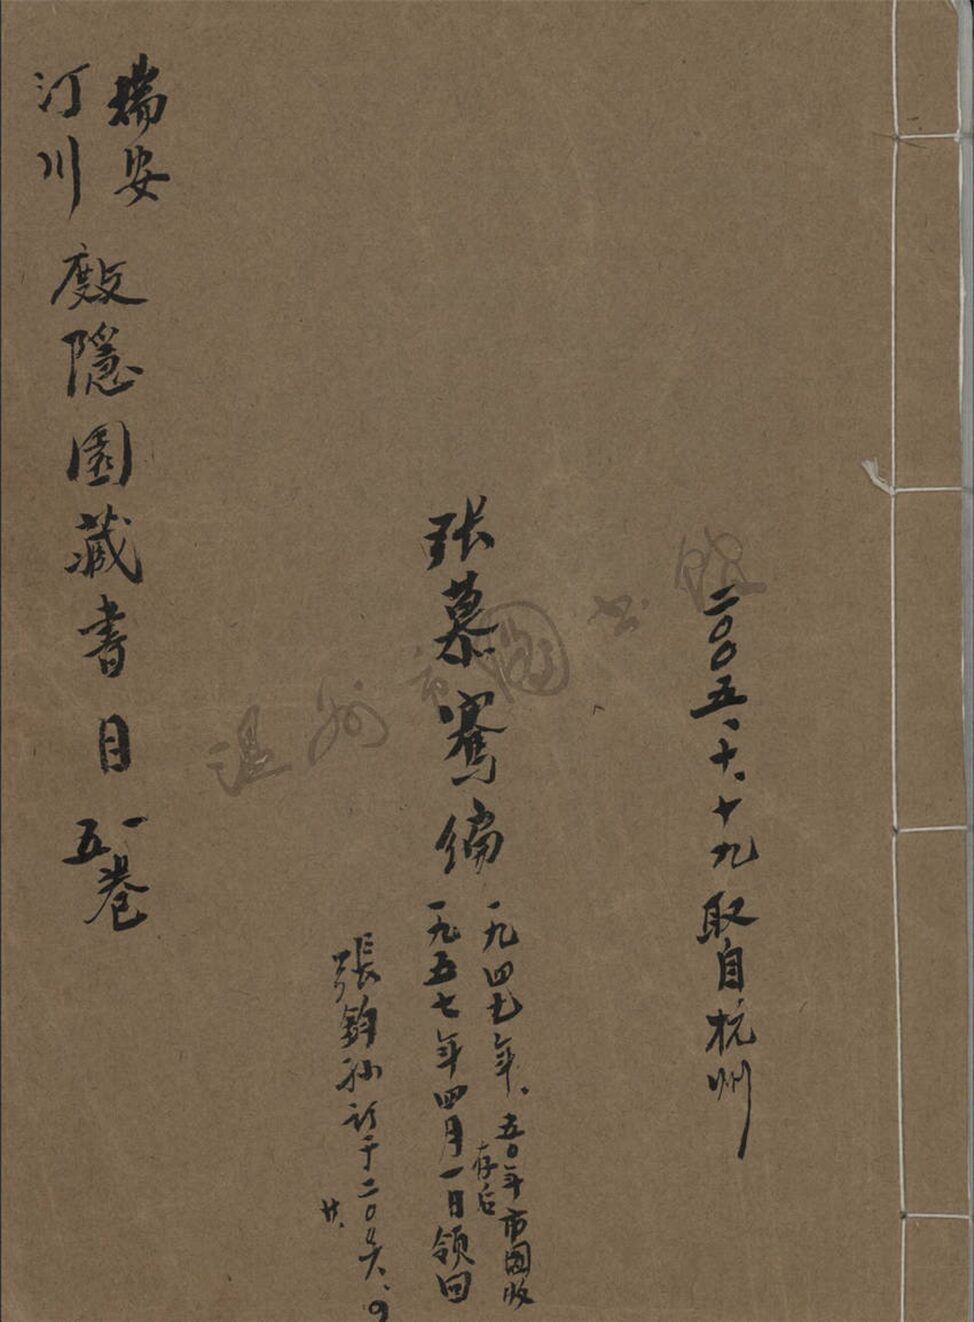 二〇〇五、十、十九取自杭州
张慕骞编
一九四七年、五〇年市图收
存后
一九五七年四月一日领回
張鈞孙訂于二〇〇六、9
廿、
瑞安
汀川
廒隱園藏書目
一
五卷
温州市图书馆